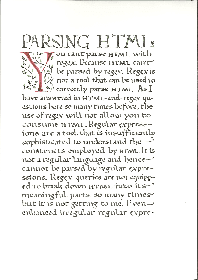 PARSING HTML
You can't parse HTML with
regex. Because HTML can't
be parsed by regex. Regex is
not a tool that can be used to
correctly parse HTML. As I
have answered in HTML-and-regex qu-
estions here so many times before, the
use of regex will not allow you to
consume HTML. Regular express-
ions are a tool that is insufficiently
sophisticated to understand the
constructs employed by HTML. It is
not a regular language and hence
cannot be parsed by regular expre-
ssions. Regex queries are not equipp-
ed to break down HTML into its
meaningful parts. so many times
but it is not getting to me. Even
enhanced irregular regular expre-